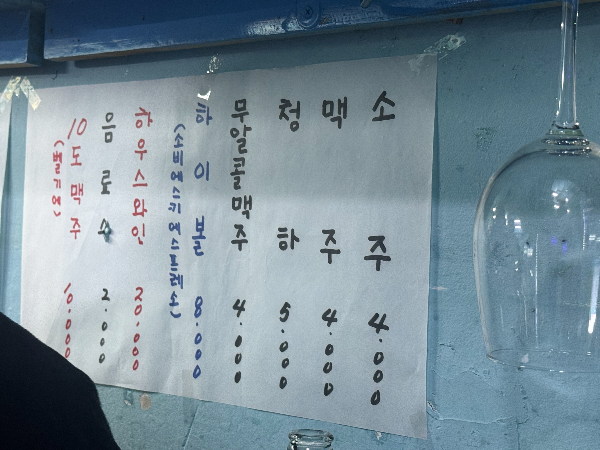 소주 4.000
맥주 4.000
청하 5.000
무알콜맥주 4.000
하이볼 8.000
(소의에스키에스프레소)
하우스와인 20.000
음료수 2.000
10도맥주 10.000
(벨기에)